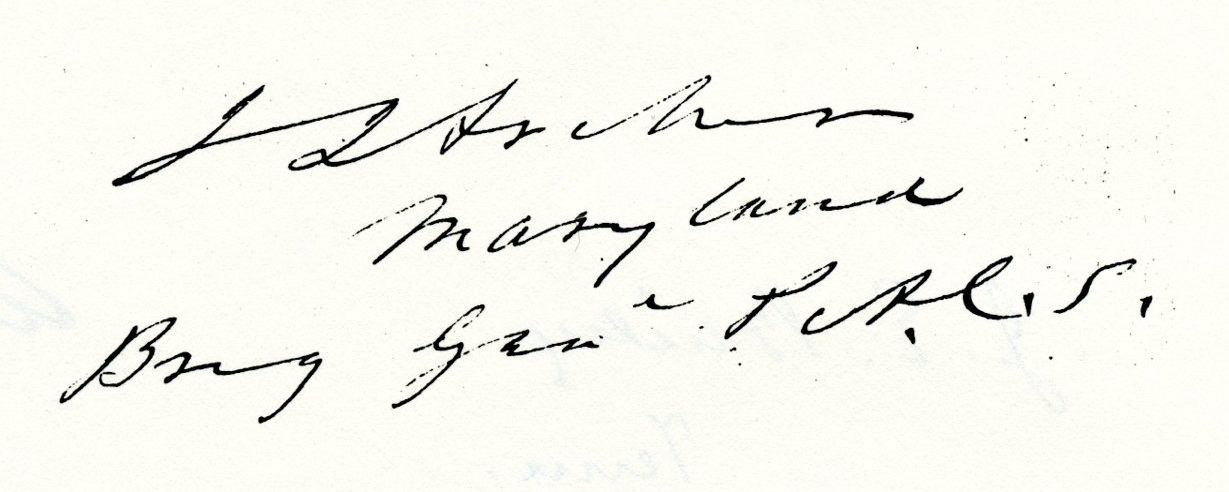 J J Archer
Maryland
Brig Genl P. A. C. S.